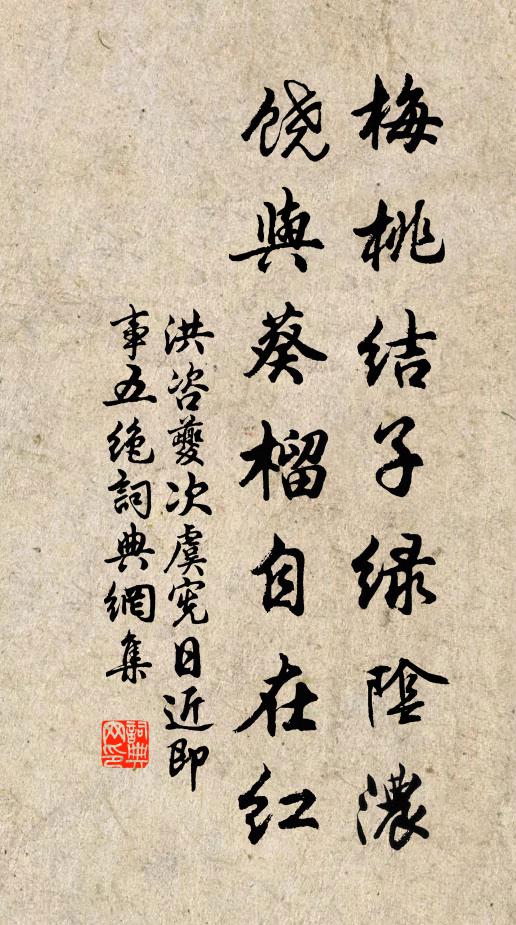 梅桃结子绿阴浓
饶与葵榴自在红
洪咨夔次虞宪日近即
事五绝词典网集
词典网印